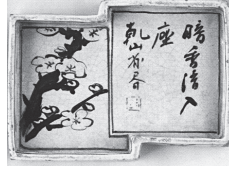 暗香清入
座
乾山省書